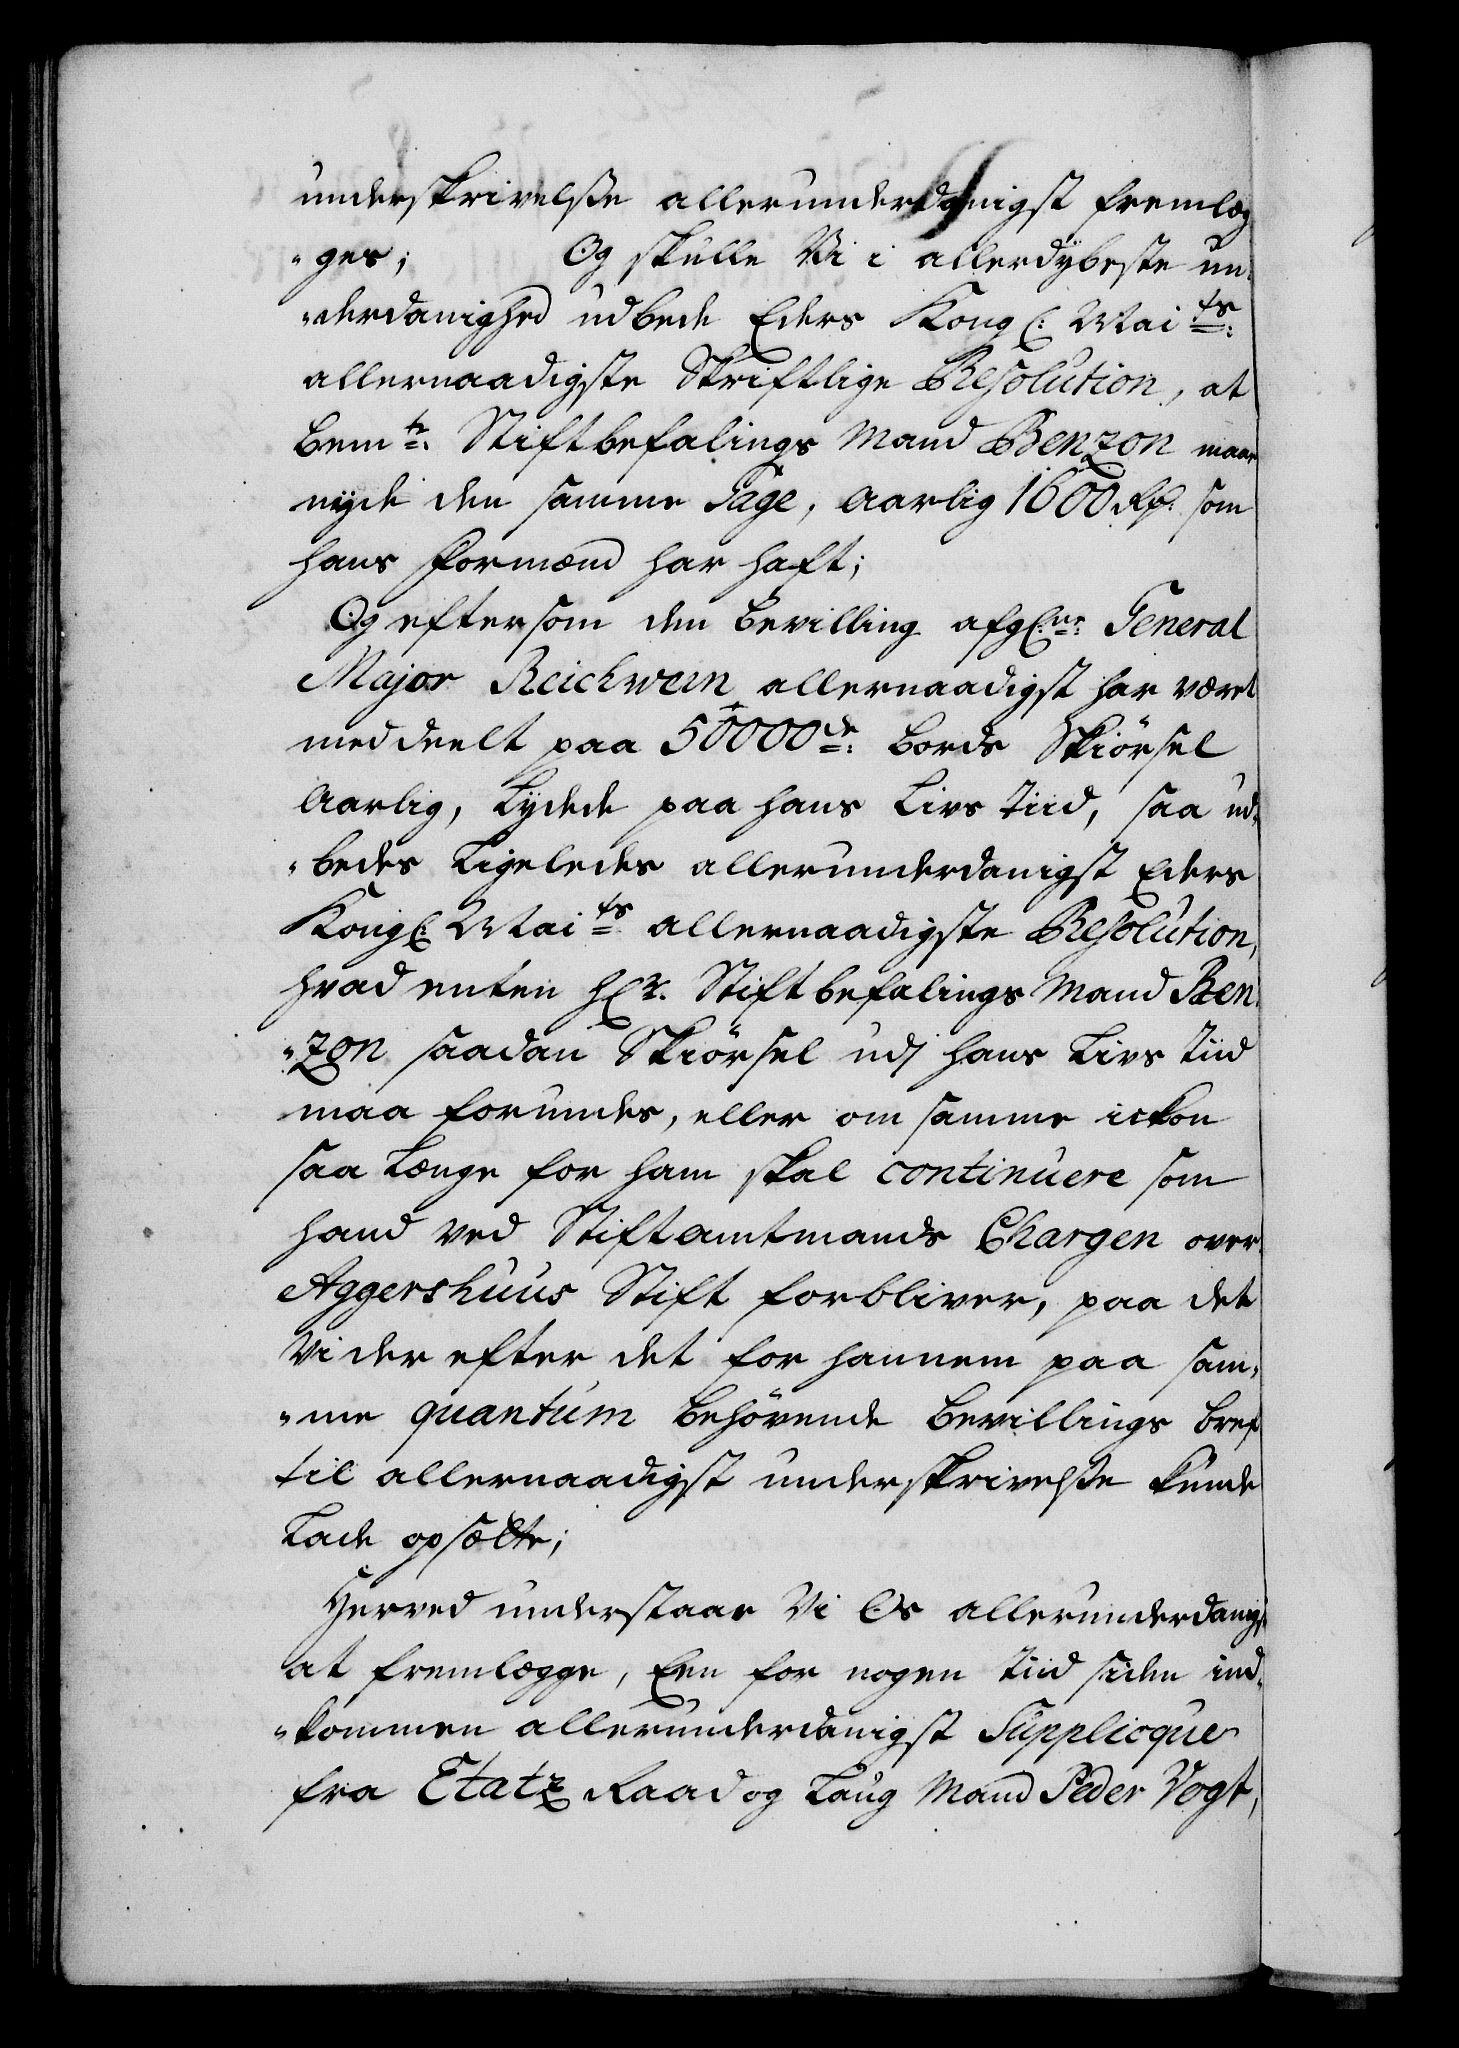 underskrivelsse allerunderdanigst fremlæg
"ges; Og skulle Vi i allerdybeste un,
"derdanighed udbede Eders Kongl: Mai ts:
allernaadigste Skriftlige Resolution, at
bemte: Stiftbefalings Mand Benzon maae
nyde den samme Gage, aarlig 1600 Rdr. som
hans Formænd har haft;
Og eftersom den bevilling afgl:ne: General
Major Reichwein allernaadigst har været
meddeelt paa 50000de: bords Skiørsel
aarlig, Lydede paa hans Livs tiid, saa ud,
"bedes Ligeledes allerunderdanigst Eders
Kongl: Mai ts allernaadigste Resolution,
hvad enten Hr. Stiftbefalings Mand Ben,
"zon saadan Skiørsel udj hans Livs tiid
maa forundes, eller om samme ickon
saa Længe for ham skal continuere som
hand ved Stiftamtmands Chargen over
Aggershuus Stift forbliver, paa det
Vi der efter det for hannem paa sam,
"me quantum behövende bevillings bref
til allernaadigst underskrivelsse kunde
Lade opsætte;
Herved understaar Vi Os allerunderdanigst
at fremlægge, Een for nogen tiid siden ind,
"kommen allerunderdanigst Supplicque
fra Etatz Raad og Laug Mand Peder Vogt,